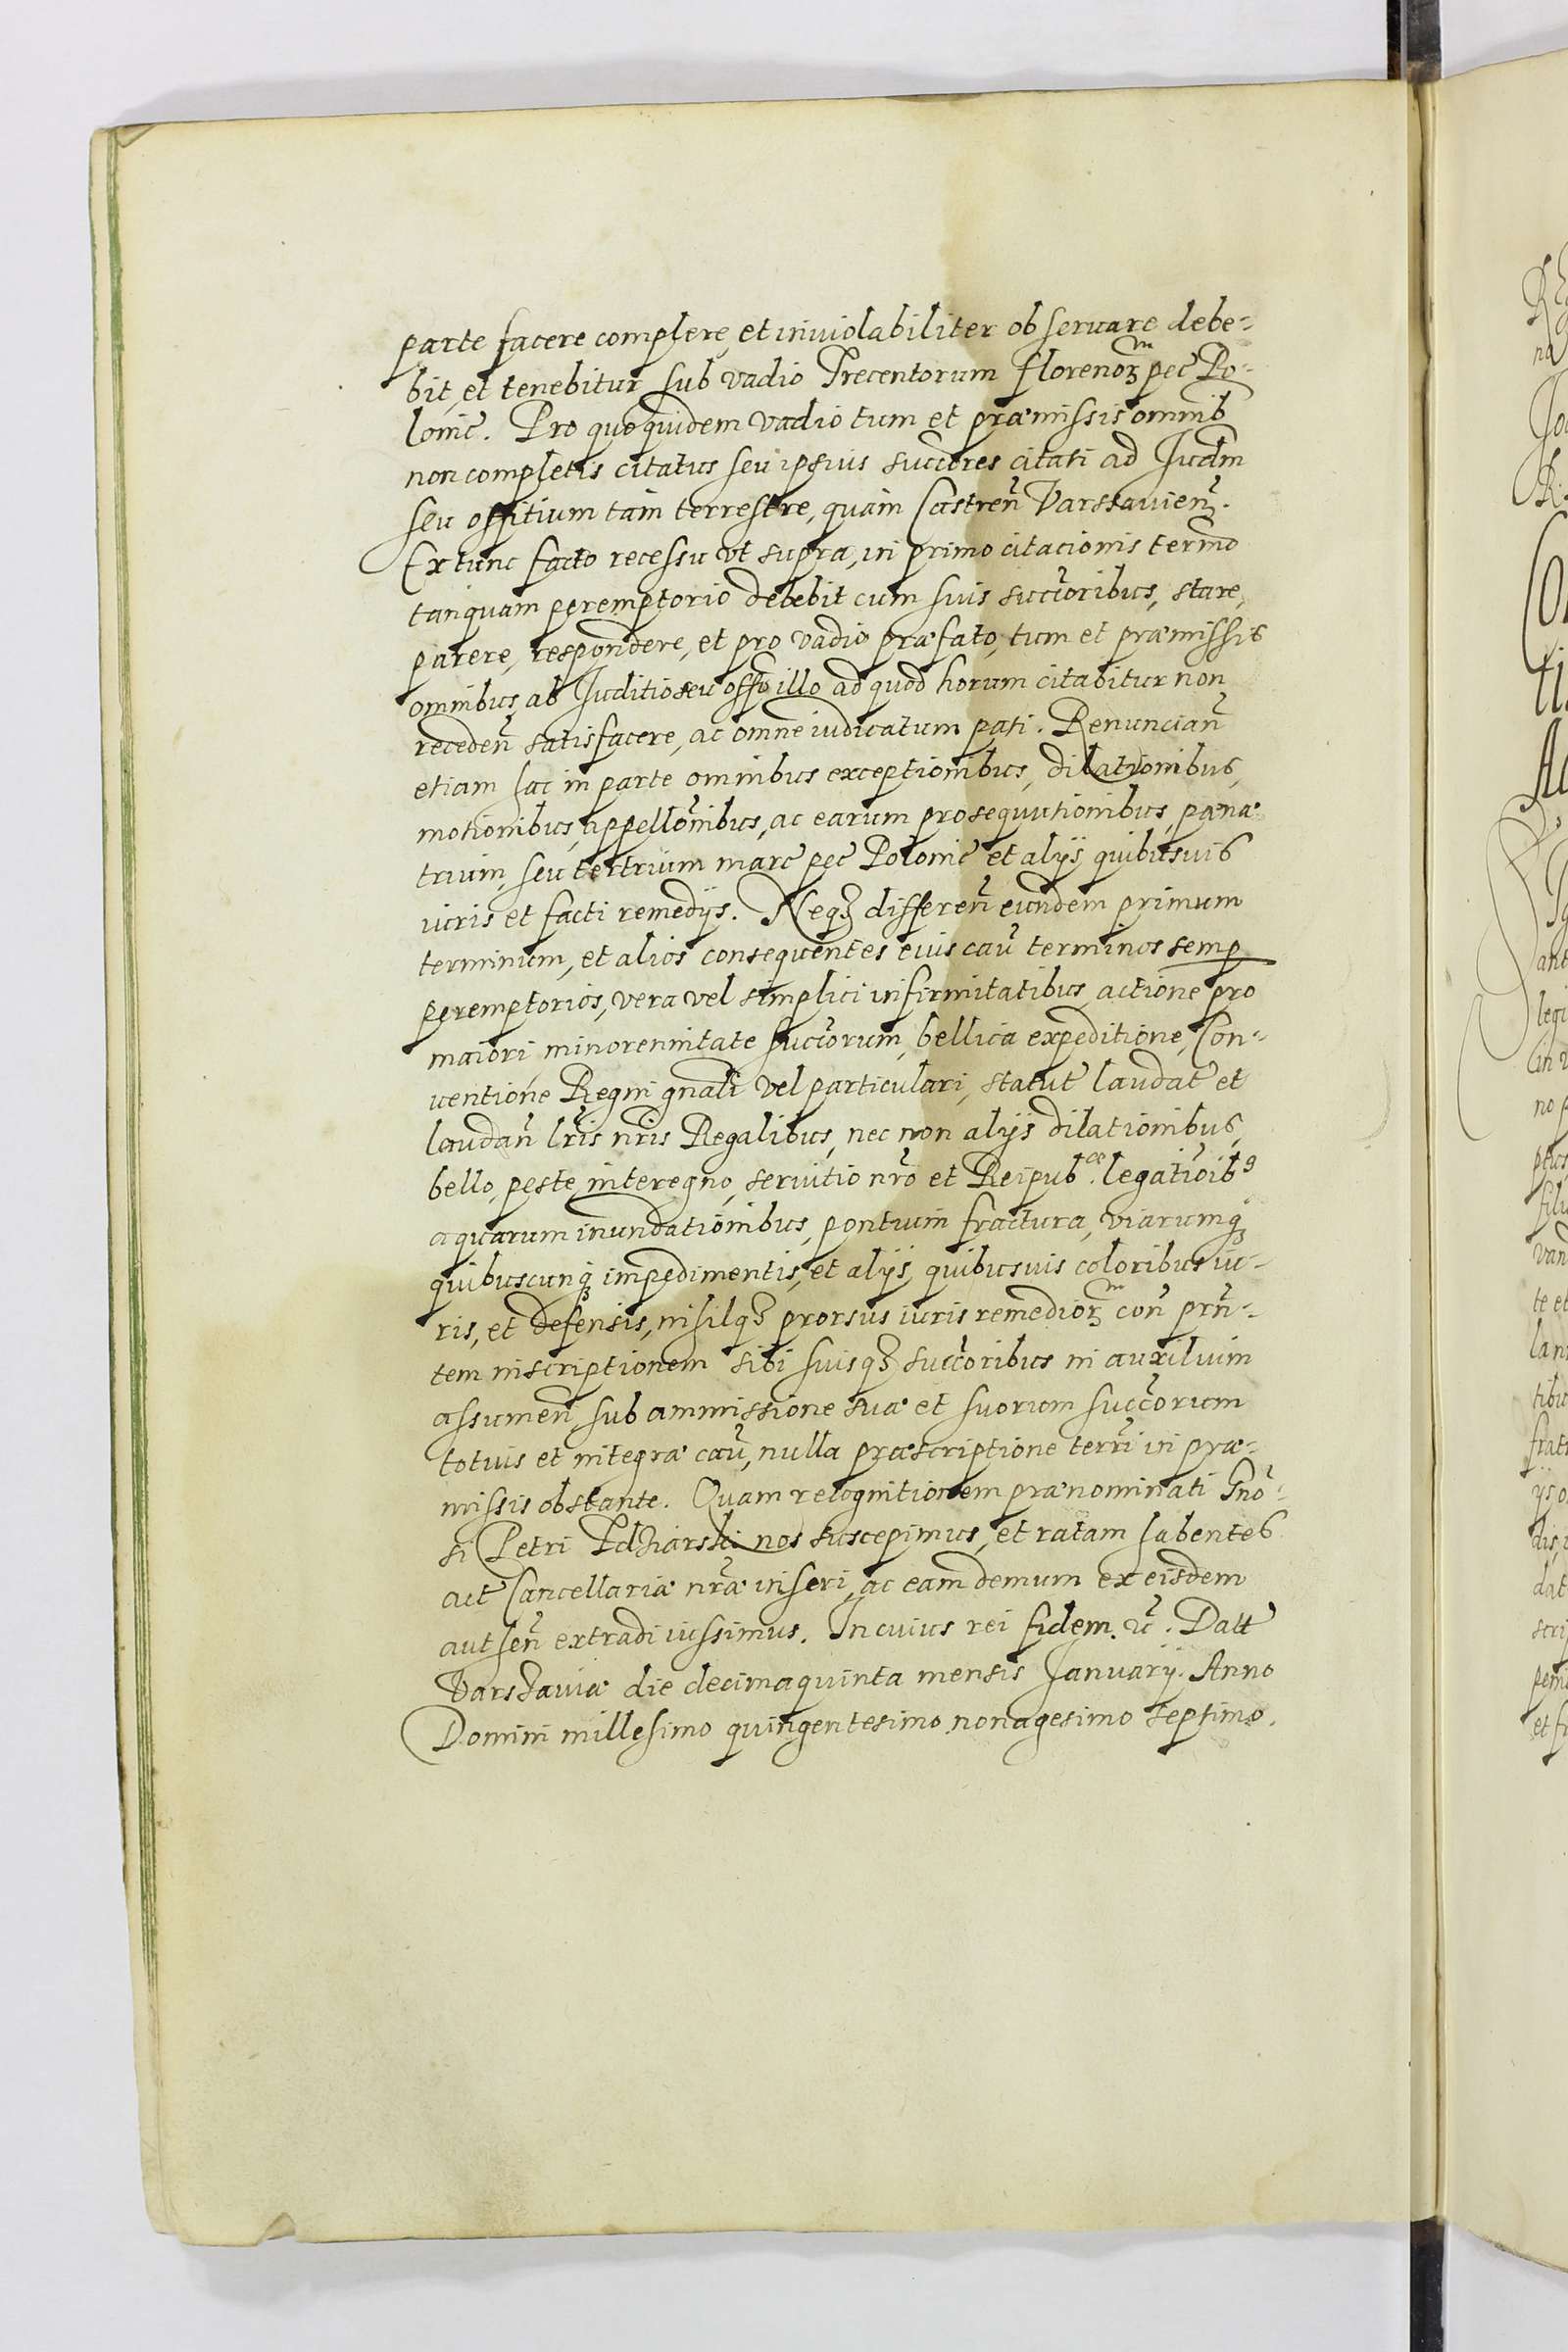 parte facere complere, et inviolabiliter observare debe-
bit, et tenebitur sub vadio Trecentorum florenoꝝm pec̃ Po-
lonic̃. Pro quo quidem vadio tum et præmissis omnib
non completis citatus seu ipsius succ̃res citati ad Iudm̃
seu offitium tam terrestre, quàm Castren̄ Varssauien̄.
Ex tunc facto recessu vt supra, in primo citacionis term̃o
tanquam peremptorio debebit cum suis succ̃oribus, stare,
parere, respondere, et pro vadio præfato, tum et præmissis
omnibus, ab Iuditio seu off̃o illo ad quod horum citabitur non
receden̄ satisfacere, ac omne iudicatum pati. Renuncian̄
etiam hac in parte omnibus exceptionibus, dilationibus,
motionibus, appellõnibus, ac earum prosequutionibus, pæna
trium, seu ter trium marc̃ pec̃ Polonic̃ et alijs quibusuis
iuris et facti remedijs. Neqꝫ differen̄ eundem primum
terminum, et alios consequentes eius cau͂ terminos semp
peremptorios, vera vel simplici infirmitatibus, actione pro
maiori, minorennitate succ̃orum, bellica expeditione, Con-
uentione Regni gnãli vel particulari, statut̃ laudat̃ et
laudan̄ lr̃is nr̃is Regalibus, nec non alijs dilationibus,
bello, peste, interegno, seruitio nr̃o et Reipub.cæ legatioĩbꝯ
aquarum inundationibus, pontium fractura, viarumqꝫ
quibuscunqꝫ impedimentis, et alijs, quibusuis coloribus iu-
ris, et defensis, nihilqꝫ prorsus iuris remedioꝝm con̄ prn̄-
tem inscriptionem sibi suisqꝫ succ̃oribus in auxilium
assumen̄, sub ammissione suæ et suorum succ̃orum
totius et integræ cau͂, nulla præscriptione terr̃i in præ-
missis obstante. Quam recognitionem prænominati Gnõ-
si Petri Pdziarski nos suscepimus, et ratam habentes
act̃ Cancellariæ nr̃æ inseri, ac eam demum ex eisdem
authen̄ extradi iussimus. In cuius rei fidem. &c̃. Datt̃
Varssauiæ die decimaquinta mensis Ianuarij. Anno
Domini millesimo quingentesimo nonagesimo septimo.